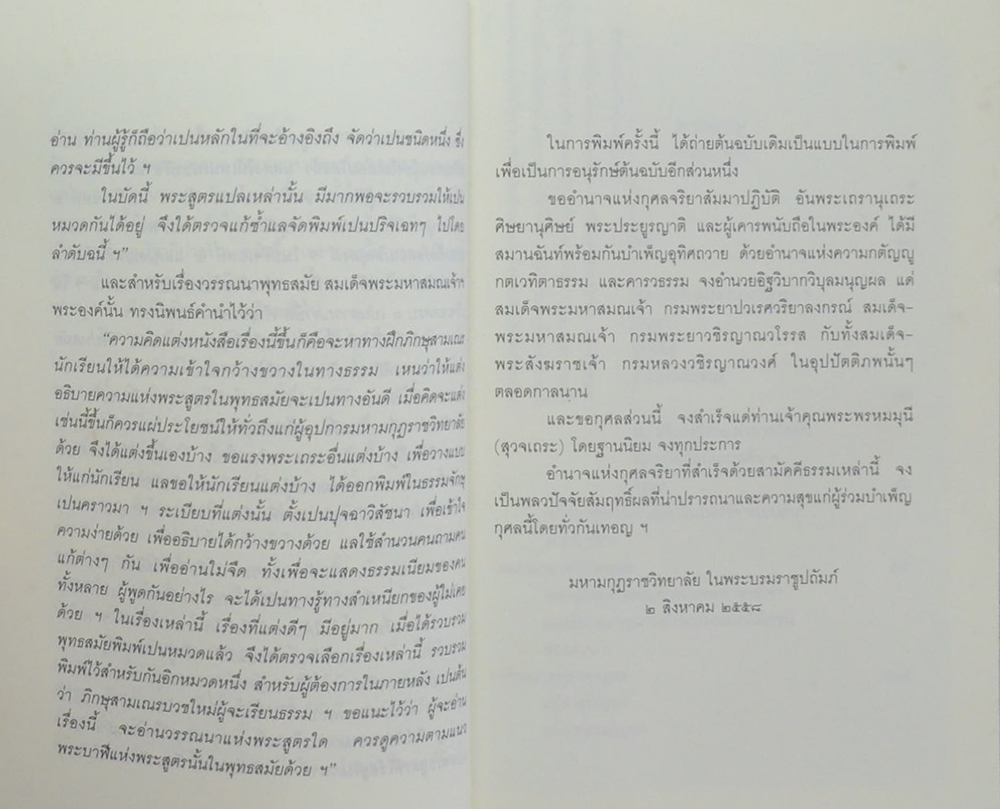 อ่าน ท่านผู้รู้ก็ถือว่าเปนหลักในที่จะอ้างอิงถึง จัดว่าเปนชนิดหนึ่ง ซึ่ง
ควรจะมีขึ้นไว้ ฯ
ในบัดนี้ พระสูตรแปลเหล่านั้น มีมากพอจะรวบรวมให้เปน
หมวดกันได้อยู่ จึงได้ตรวจแก้ซ้ำแลจัดพิมพ์เปนปริจเฉทๆ ไปโดย
ลำดับฉนี้ ฯ”
และสำหรับเรื่องวรรณนาพุทธสมัย สมเด็จพระมหาสมณเจ้าฯ
พระองค์นั้น ทรงนิพนธ์คำนำไว้ว่า
“ความคิดแต่งหนังสือเรื่องนี้ขึ้นก็คือจะหาทางฝึกภิกษุสามเณร
นักเรียนให้ได้ความเข้าใจกว้างขวางในทางธรรม เหนว่าให้แต่ง
อธิบายความแห่งพระสูตรในพุทธสมัยจะเปนทางอันดี เมื่อคิดจะแต่ง
เช่นนี้ขึ้นก็ควรแผ่ประโยชน์ให้ทั่วถึงแก่ผู้อุปการมหามกุฏราชวิทยาลัย
ด้วย จึงได้แต่งขึ้นเองบ้าง ขอแรงพระเถระอื่นแต่งบ้าง เพื่อวางแบบ
ให้แก่นักเรียน แลขอให้นักเรียนแต่งบ้าง ได้ออกพิมพ์ในธรรมจักษุ
เปนคราวมา ฯ ระเบียบที่แต่งนั้น ตั้งเปนปุจฉาวิสัชนา เพื่อเข้าใจ
ความง่ายด้วย เพื่ออธิบายได้กว้างขวางด้วย แลใช้สำนวนคนถามคน
แก้ต่างๆ กัน เพื่ออ่านไม่จืด ทั้งเพื่อจะแสดงธรรมเนียมของคน
ทั้งหลาย ผู้พูดกันอย่างไร จะได้เปนทางรู้ทางสำเหนียกของผู้ไม่เคย
ด้วย ฯ ในเรื่องเหล่านี้ เรื่องที่แต่งดีๆ มีอยู่มาก เมื่อได้รวบรวม
พุทธสมัยพิมพ์เปนหมวดแล้ว จึงได้ตรวจเลือกเรื่องเหล่านี้ รวบรวม
พิมพ์ไว้สำหรับกันอีกหมวดหนึ่ง สำหรับผู้ต้องการในภายหลัง เปนต้น
ว่า ภิกษุสามเณรบวชใหม่ผู้จะเรียนธรรม ฯ ขอแนะไว้ว่า ผู้จะอ่าน
เรื่องนี้ จะอ่านวรรณนาแห่งพระสูตรใด ควรดูความตามแนว
พระบาฬีแห่งพระสูตรนั้นในพุทธสมัยด้วย ฯ”
ในการพิมพ์ครั้งนี้ ได้ถ่ายต้นฉบับเดิมเป็นแบบในการพิมพ์
เพื่อเป็นการอนุรักษ์ต้นฉบับอีกส่วนหนึ่ง
ขออำนาจแห่งกุศลจริยาสัมมาปฏิบัติ อันพระเถรานุเถระ
ศิษยานุศิษย์ พระประยูรญาติ และผู้เคารพนับถือในพระองค์ ได้มี
สมานฉันท์พร้อมกันบำเพ็ญอุทิศถวาย ด้วยอำนาจแห่งความกตัญญู
กตเวทิตาธรรม และคารวธรรม จงอำนวยอิฐวิบากวิบุลมนุญผล แด่
สมเด็จพระมหาสมณเจ้า กรมพระยาปวเรศวริยาลงกรณ์ สมเด็จ-
พระมหาสมณเจ้า กรมพระยาวชิรญาณวโรรส กับทั้งสมเด็จ-
พระสังฆราชเจ้า กรมหลวงวชิรญาณวงศ์ ในอุปปัตติภพนั้นๆ
ตลอดกาลนาน
และขอกุศลส่วนนี้ จงสำเร็จแด่ท่านเจ้าคุณพระพรหมมุนี
(สุวจเถระ) โดยฐานนิยม จงทุกประการ
อำนาจแห่งกุศลจริยาที่สำเร็จด้วยสามัคคีธรรมเหล่านี้ จง
เป็นพลวปัจจัยสัมฤทธิ์ผลที่น่าปรารถนาและความสุขแก่ผู้ร่วมบำเพ็ญ
กุศลนี้โดยทั่วกันเทอญ ฯ
มหามกุฏราชวิทยาลัย ในพระบรมราชูปถัมภ์
๒ สิงหาคม ๒๕๕๘